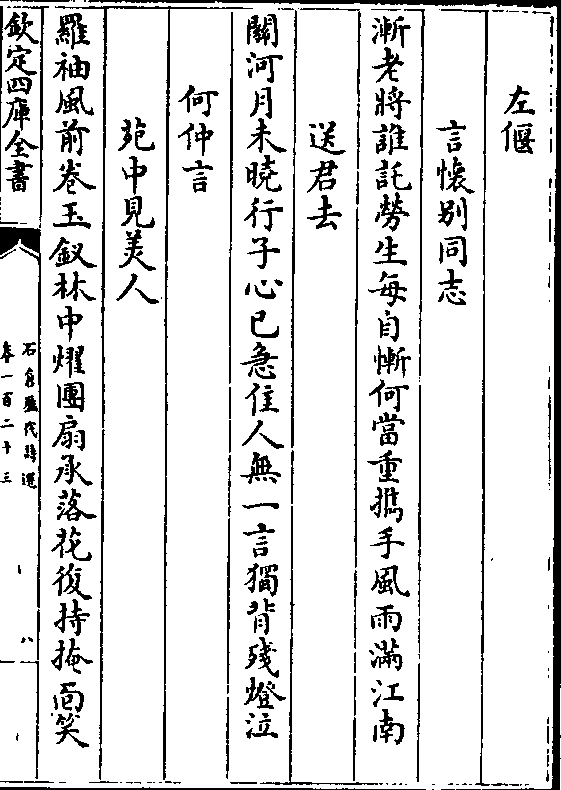 左偃
言懐别同志
漸老將誰託勞生每自慚何當重攜手風雨滿江南
送君去
關河月未曉行子心已急住人無一言獨背殘燈泣
何仲言
苑中見美人
羅袖風前卷玉釵林中燿團扇承落花復持掩面笑
欽定四庫全書
石倉歴代詩選
卷一百二十三
八